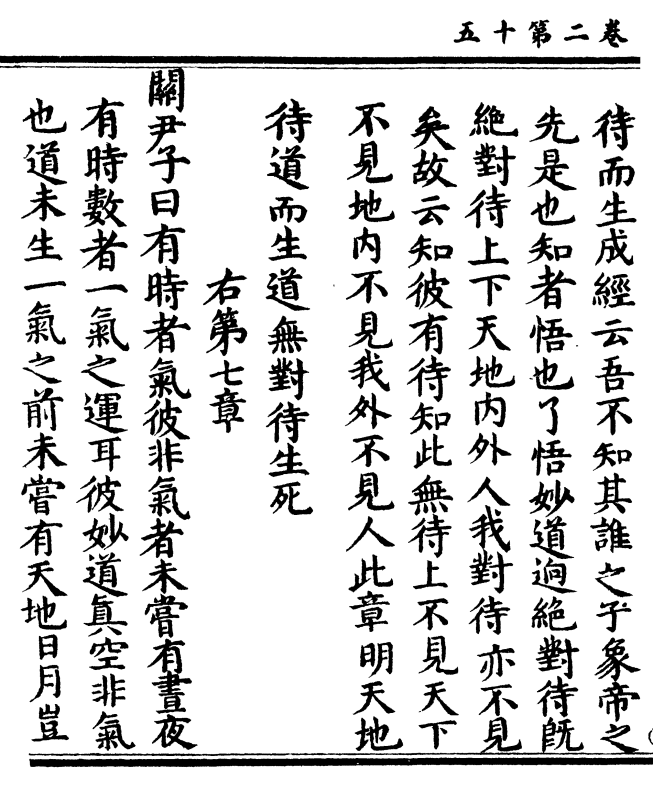 卷二第十五
待而生成經云吾不知其誰之子象帝之
先是也知者悟也了悟妙道逈絶對待旣
絶對待上下天地内外人我對待亦不見
矣故云知彼有待知此無待上不見天下
不見地内不見我外不見人此章明天地
待道而生道無對待生死
右第七章
關尹子曰有時者氣彼非氣者未嘗有晝夜
有時數者一氣之運耳彼妙道眞空非氣
也道未生一氣之前未嘗有天地日月豈